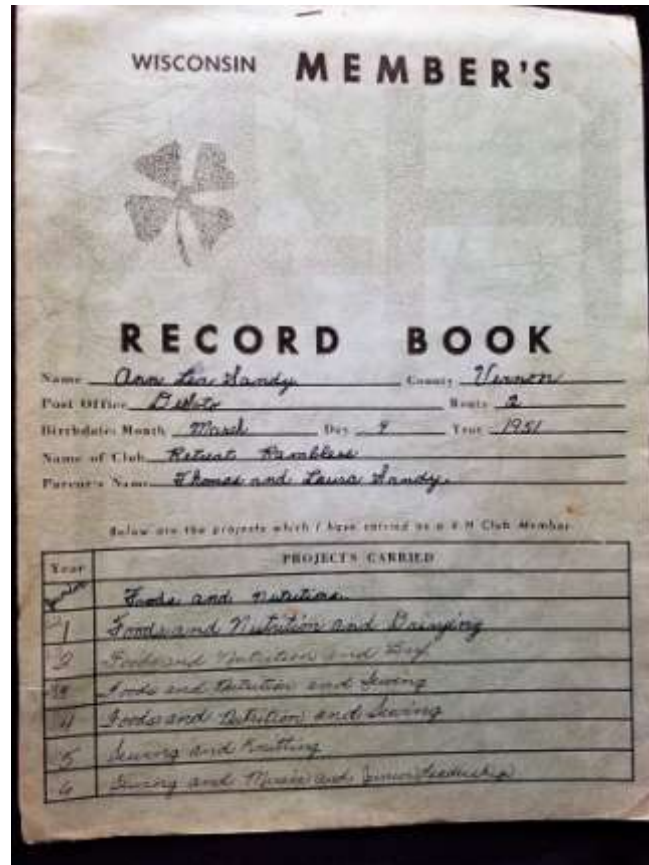 WISCONSIN MEMBER'S
RECORD BOOK
Name Ann Lea Sandy County Vernon
Post Office DeSoto Route 2
Birthdate: Month March Day 9 Year 1951
Name of Club Retreat Ramblers
Parent's Name Thomas and Laura Sandy
Below are the projects which I have carried as a 4-H Club Member
Year PROJECTS CARRIED
Foods and Nutrition
1 Foods and Nutrition and Dairying
2 Foods and Nutrition and
3 Foods and Nutrition and Sewing
4 Foods and Nutrition and Sewing
5 Sewing and Knitting
6 Sewing and Music and Junior Leadership